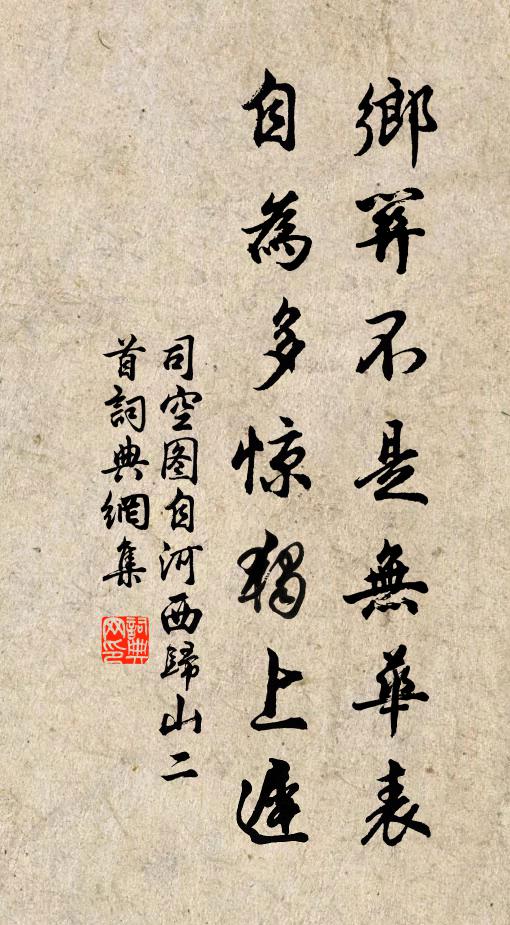 鄉關不是無華表
自為多惊獨上遲
司空图自河西歸山二
首詞典網集
詞典
网印